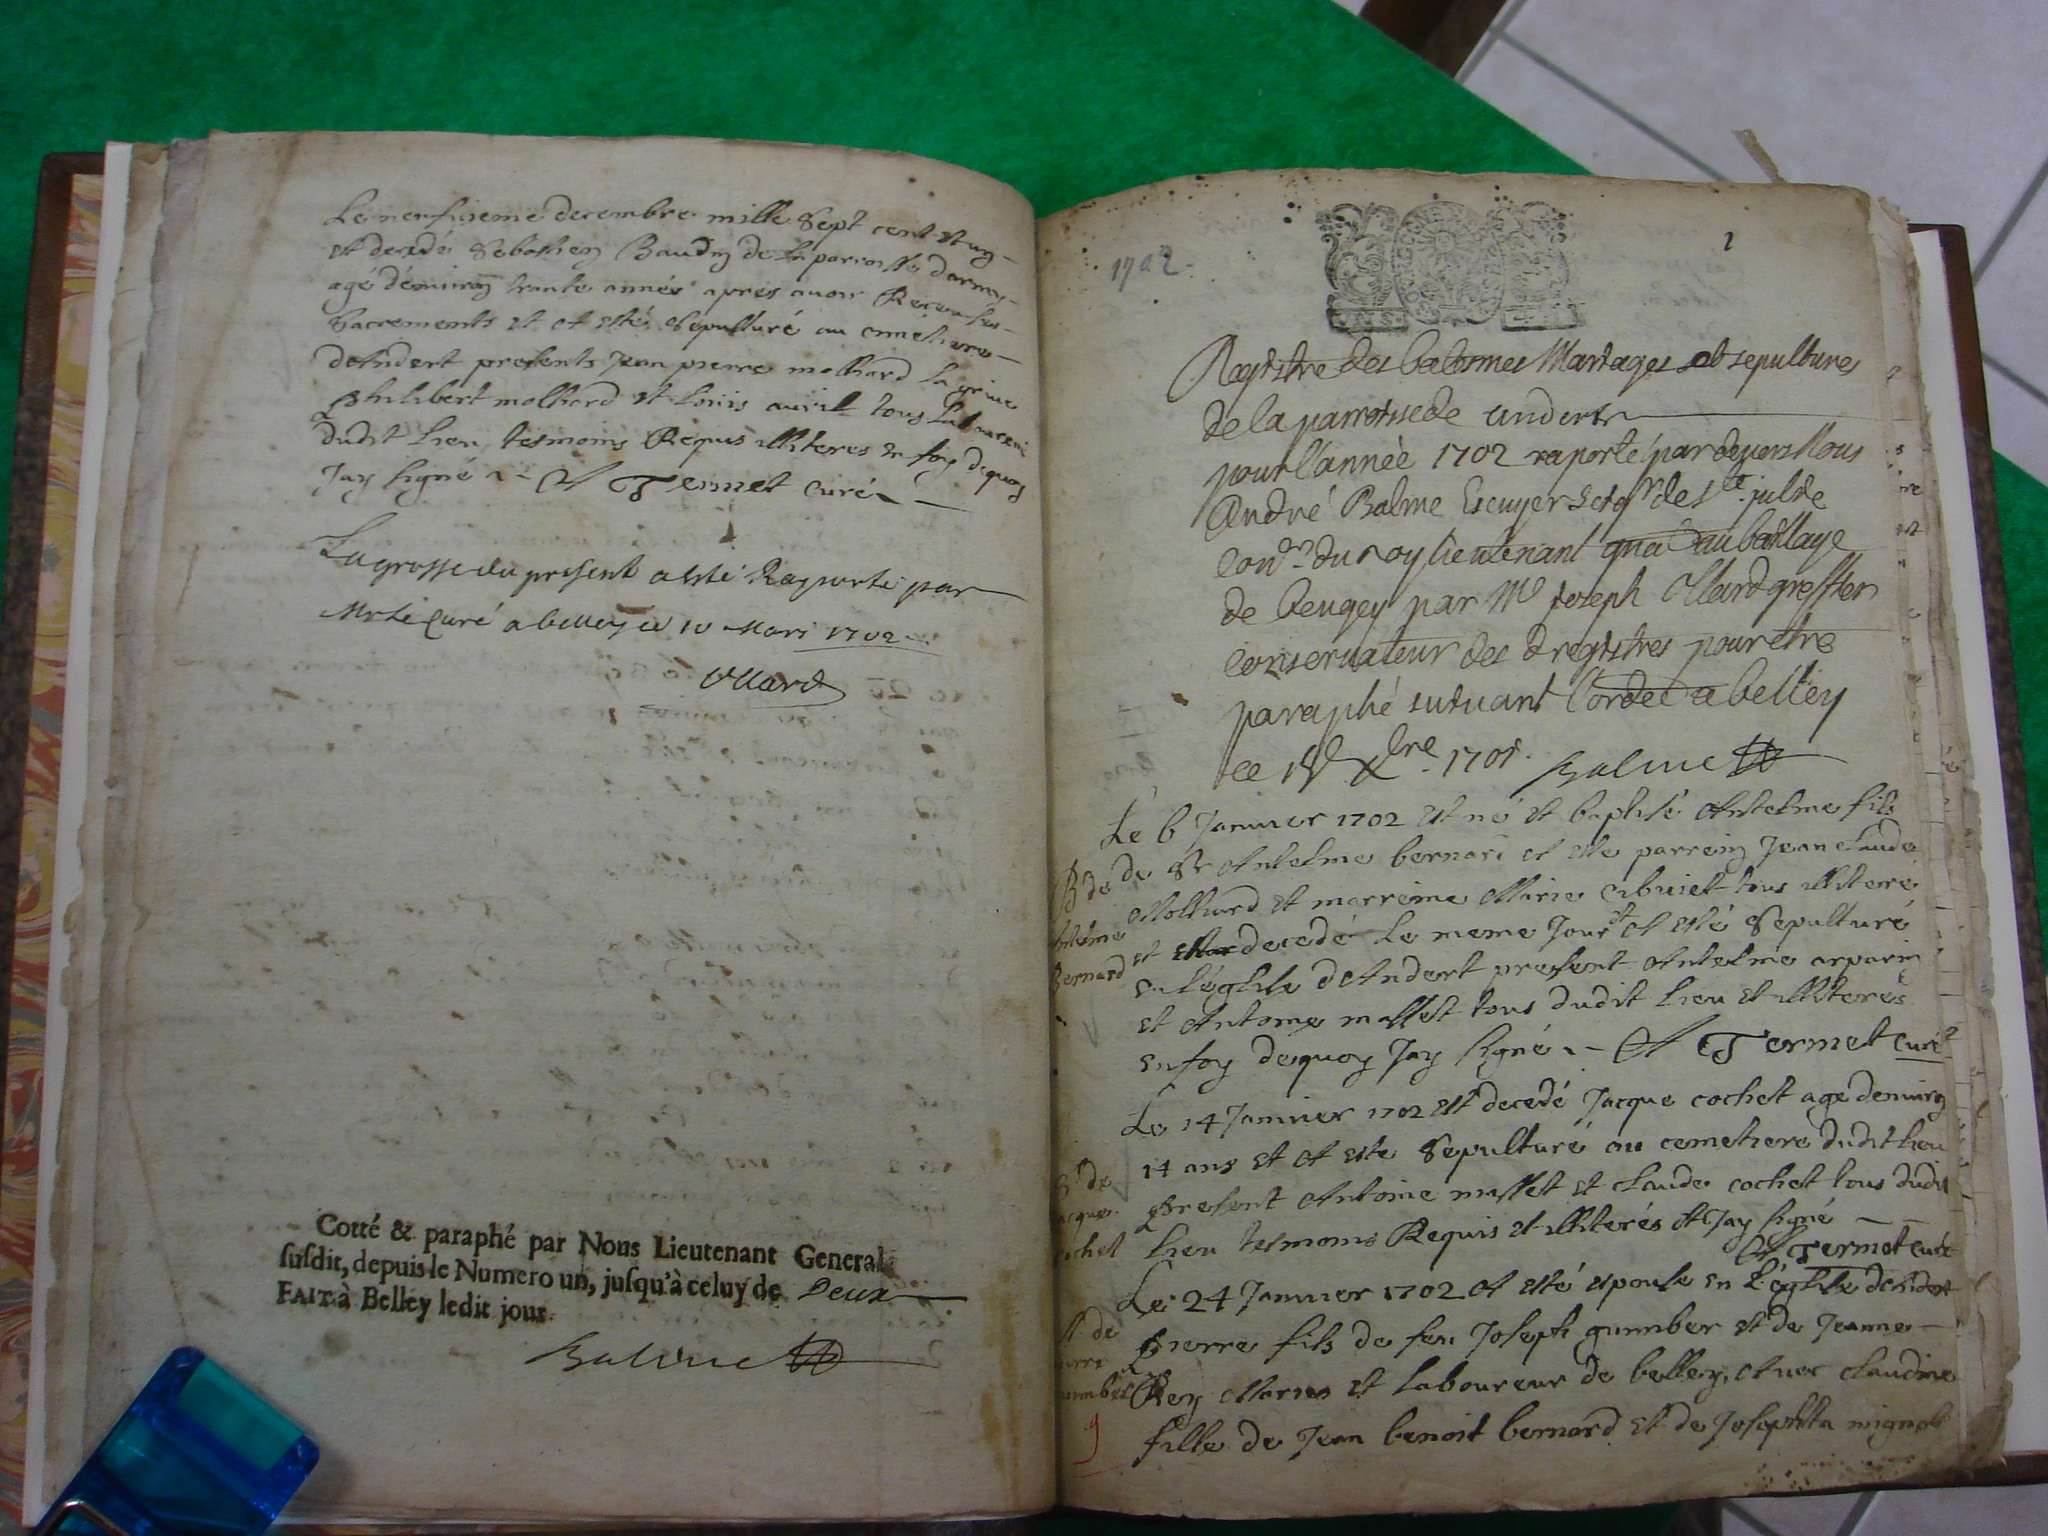 Le neufvieme decembre mille sept cent et un
est decedé Sebastien Baudin de la parroisse
agé d'environ trante année apres avoir Receu les
Sacrements et at esté sepulturé au cimetiere
dandert presents Jean pierre molliard
philibert molliard et Louis tous Laboureurs
dudit Lieu tesmoins Requis illiteres en foy dequoy
Jay signé Termet curé
La grosse du present a esté Raporté par
Mr le Curé a belley ce 10 Mars 1702
Ollard
Cotté & paraphé par Nous Lieutenant General
susdit, depuis le Numero un, jusqu'à celuy de Deux
FAIT à Belley ledit jour.
Balme
1702
1
Registre des batesmes Mariages et sepultures
de la parroisse de andert
pour l'année 1702 raporté par devers Nous
André Balme Escuyer Seigr de Ste julie
Coner du roy lieutenant gnal au bailliage
de beugey par Me joseph Ollard greffier
conservateur des dregistres pour etre
paraphé suivant l'orde a belley
ce Xbre 1701. Balme
Le 6 Janvier 1702 est né et baptisé Antelme fils
de Sr Antelme bernard at este parrein Jean claude
Molliard et marreine Marie tous illiteré
et decedé Le meme Jour et at esté sepulturé
en l'eglise dAndert present Antelme arparin
et Antoine masset tous dudit Lieu et illiterés
en foy dequoy Jay signé Termet curé
B de
Antelme
Bernard
Le 14 Janvier 1702 est decedé Jacque cochet agé denviron
14 ans et at este sepulturé au cemetiere dudit lieu
present Antoine masset et claude cochet tous dudit
Lieu tesmoins Requis et illiterés et Jay signé
Termet curé
de
cochet
Le 24 Janvier 1702 at esté espousé en l'eglise dAndert
pierre fils de feu Joseph gunnber et de Jeanne
Rey Maries et Laboureur de belley, avec claudine
fille de Jean benoit bernard et de Josephta mignot
M de
9